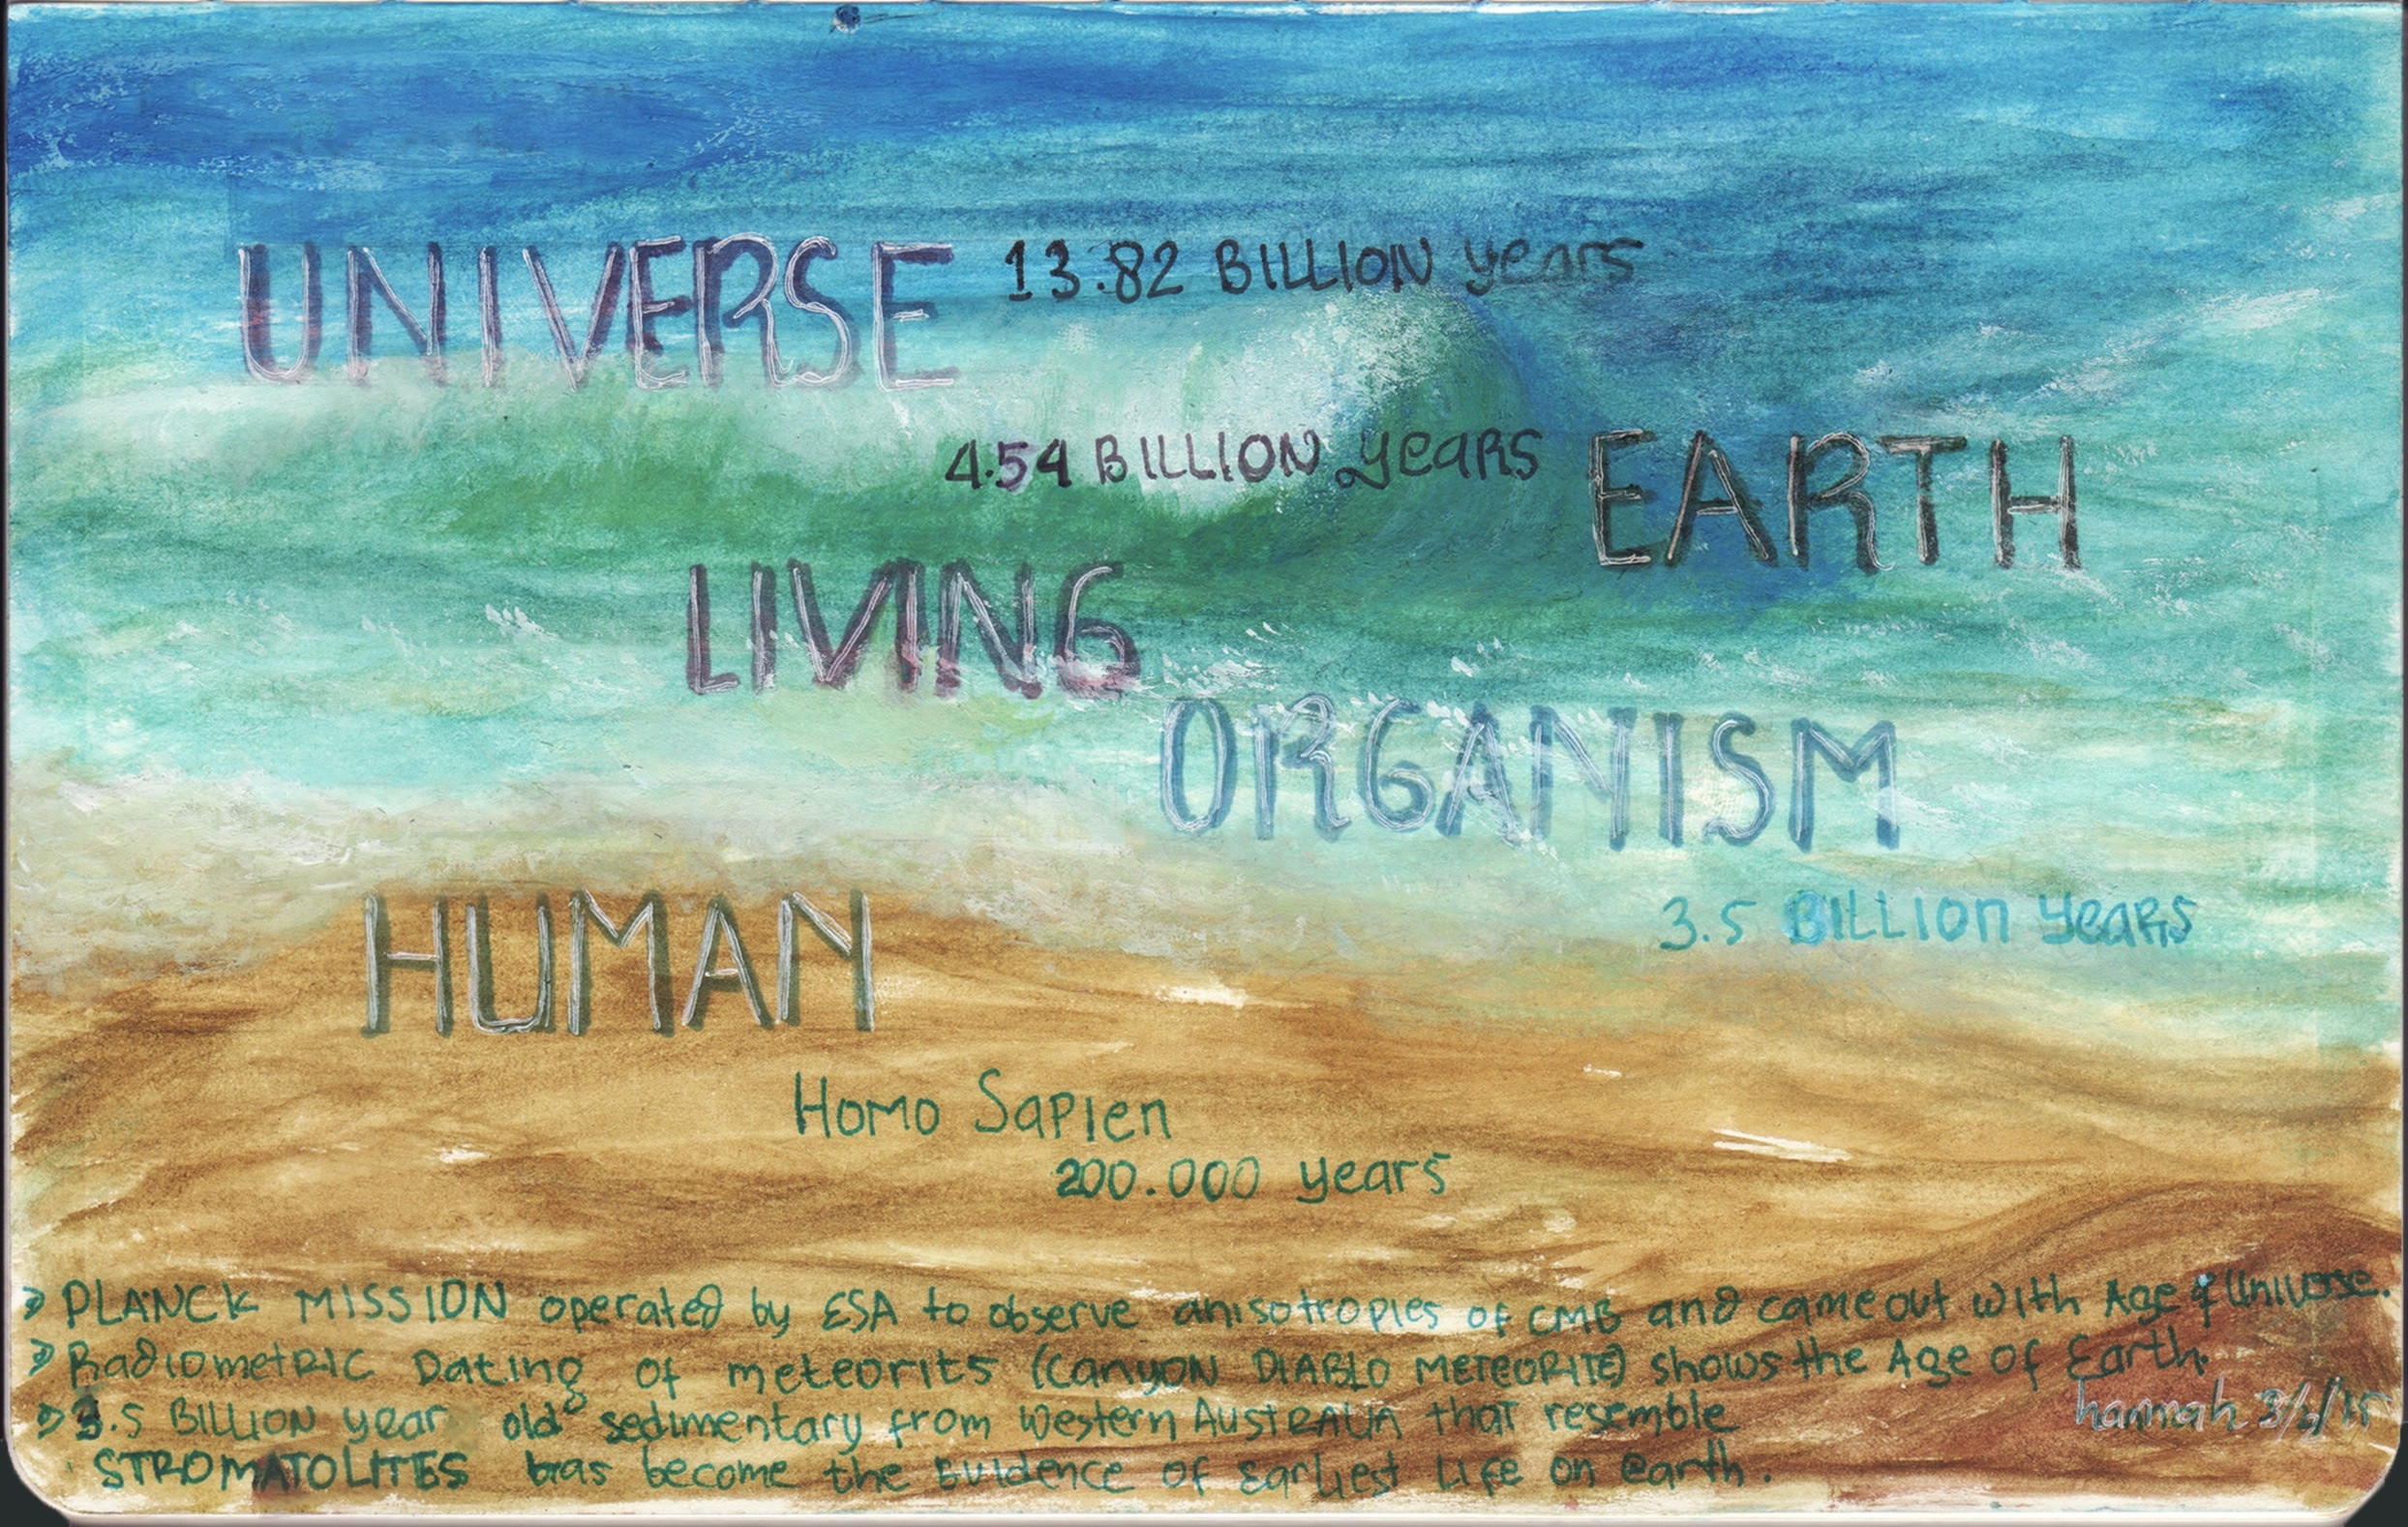 UNIVERSE 13.82 BILLION years
4.54 BILLION years EARTH
LIVING
ORGANISM
3.5 BILLION years
HUMAN
Homo Sapien
200.000 years
> PLANCK MISSION operated by ESA to observe anisotropies of CMB and came out with Age of Universe.
> Radiometric Dating of meteorits (Canyon DIABLO METEORITE) shows the Age of Earth.
hannah 3/6/15
> 3.5 BILLION year old sedimentary from Western AUSTRALIA that resemble
STROMATOLITES has become the Evidence of Earliest Life on Earth.